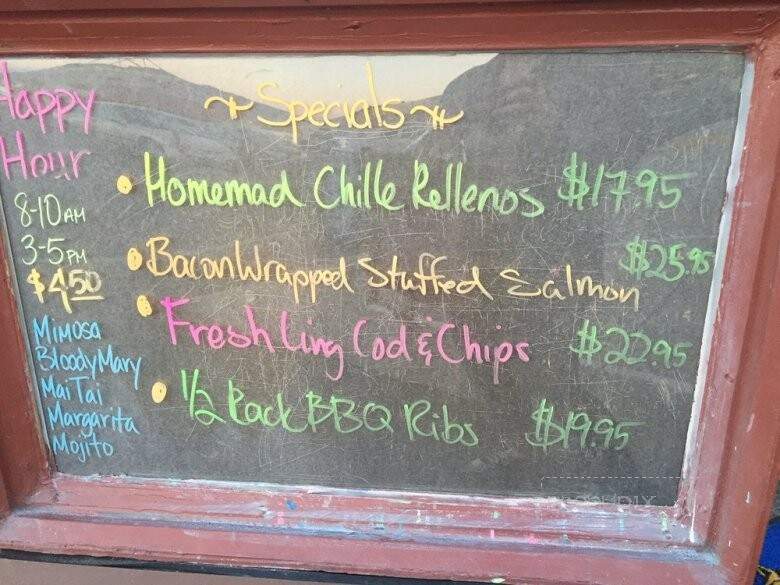 Happy
Hour
8-10 AM
3-5 PM
$4.50
Mimosa
Bloody Mary
Mai Tai
Margarita
Mojito
Specials
• Homemad Chille Rellenos $17.95
• Bacon Wrapped Stuffed Salmon $25.95
• Fresh Ling Cod & Chips $22.95
• 1/2 Rack BBQ Ribs $19.95